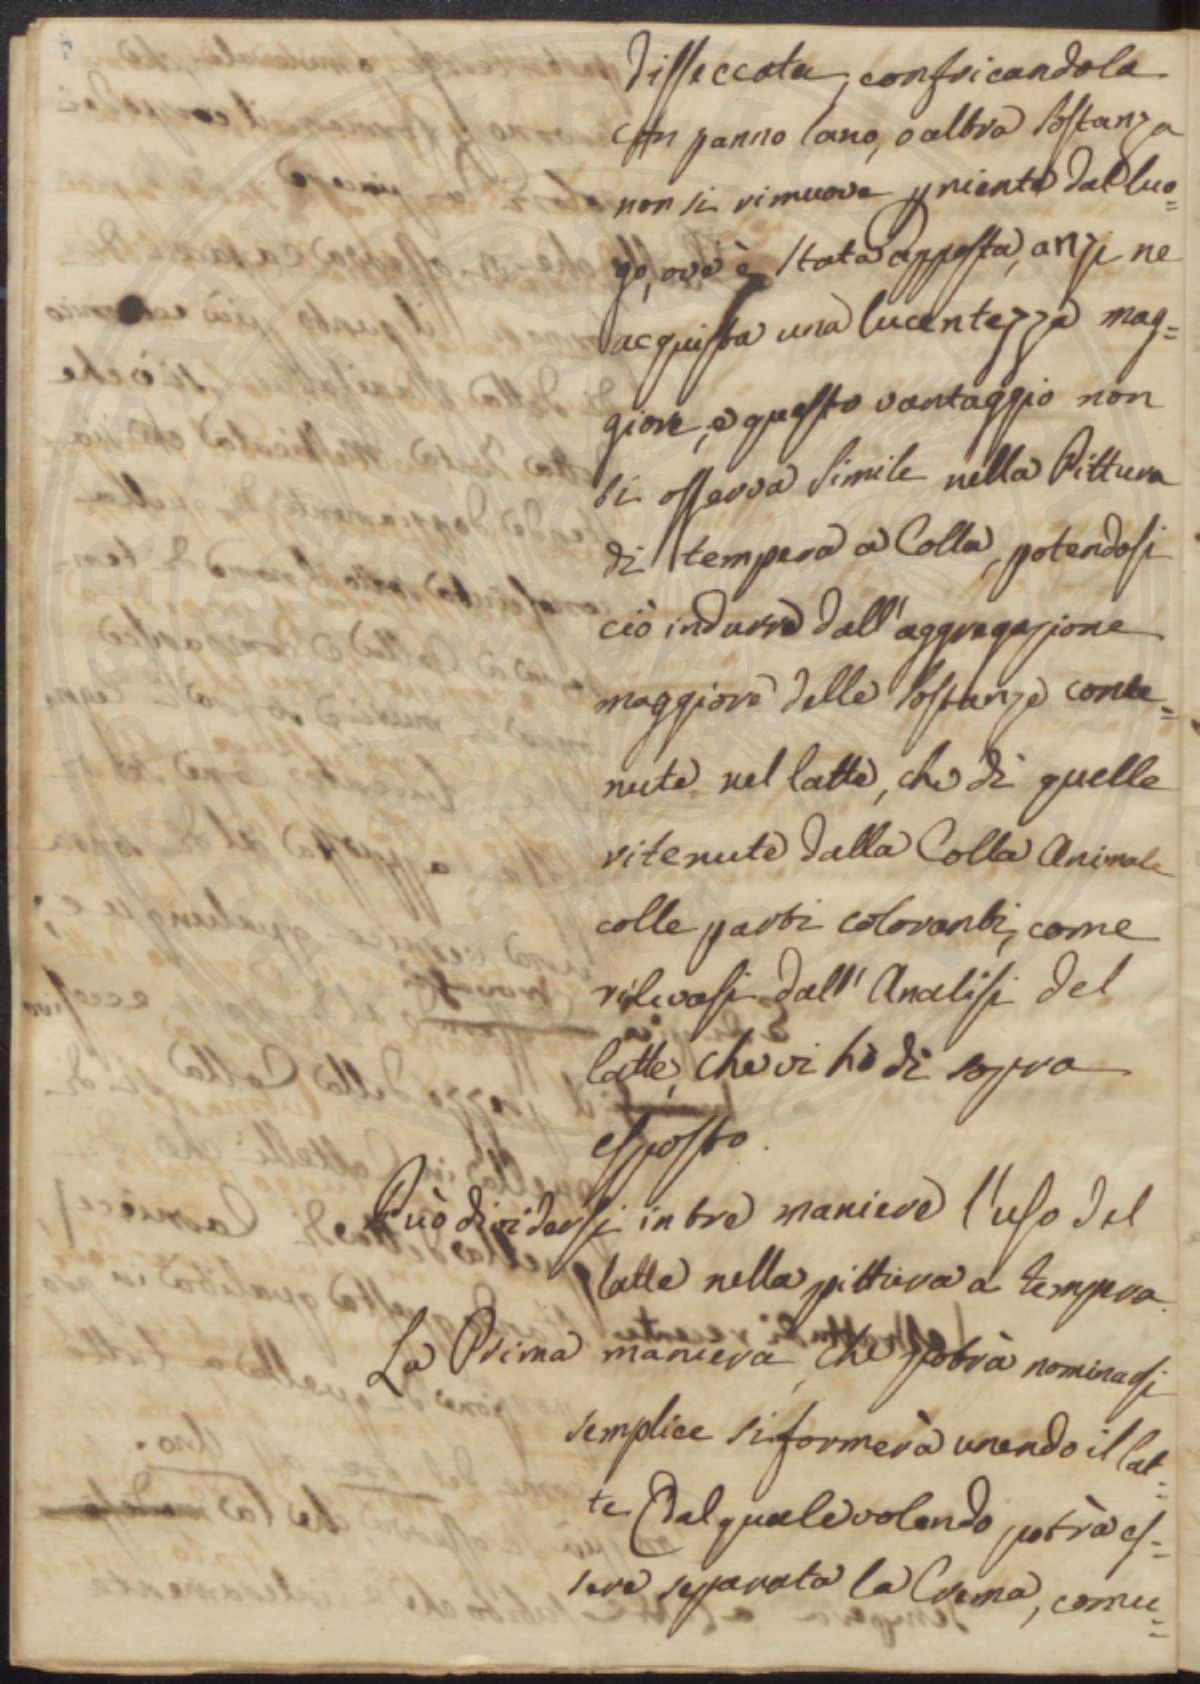 disseccata, confricandola
con panno lano, o altra sostanza
non si rimuove pniente dal luo=
go, ove è stata apposta, anzi ne
acquista una lucentezza mag=
giore, e questo vantaggio non
si osserva simile nella Pittura
di tempera a Colla, potendosi
ciò indurre dall'aggregazione
maggiore delle sostanze conte=
nute nel latte, che di quelle
ritenute dalla Colla Animale
colle parti coloranti, come
rilevasi dall'Analisi del
latte, che vi hò di sopra
esposto.
Può dividersi in tre maniere l'uso del
latte nella pittura a tempera.
La Prima maniera, che potrà nominasi
semplice si formerà unendo il lat=
te (dal quale volendo potrà es=
sere separata la Crema, comu=